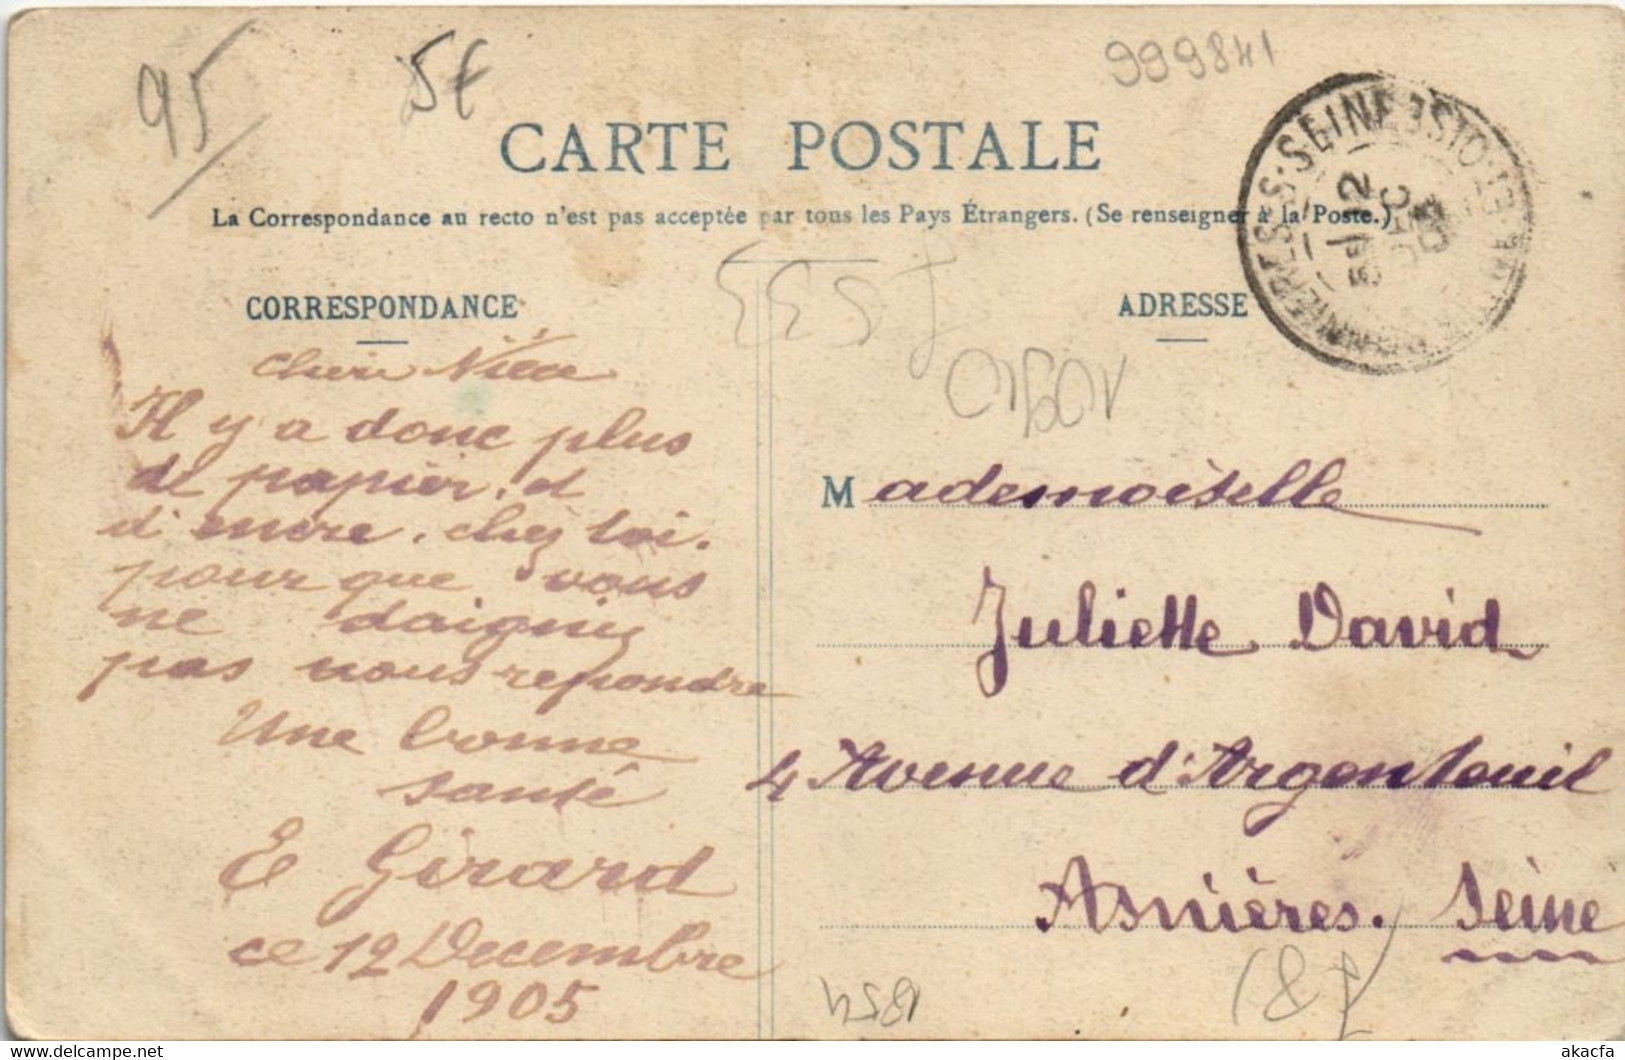 95
5€
999841
CARTE POSTALE
La Correspondance au recto n'est pas acceptée par tous les Pays Étrangers. (Se renseigner à la Poste.)
SEINE & OISE
12
DEC
05
CORRESPONDANCE
ADRESSE
cheri Nièce
Il y a donc plus
de papier. et
d'encre. chez toi.
pour que vous
ne daignez
pas nous repondre
Une bonne
santé
E Girard
ce 12 Decembre
1905
Mademoiselle
Juliette David
4 Avenue d'Argenteuil
Asnières. Seine
akacfa